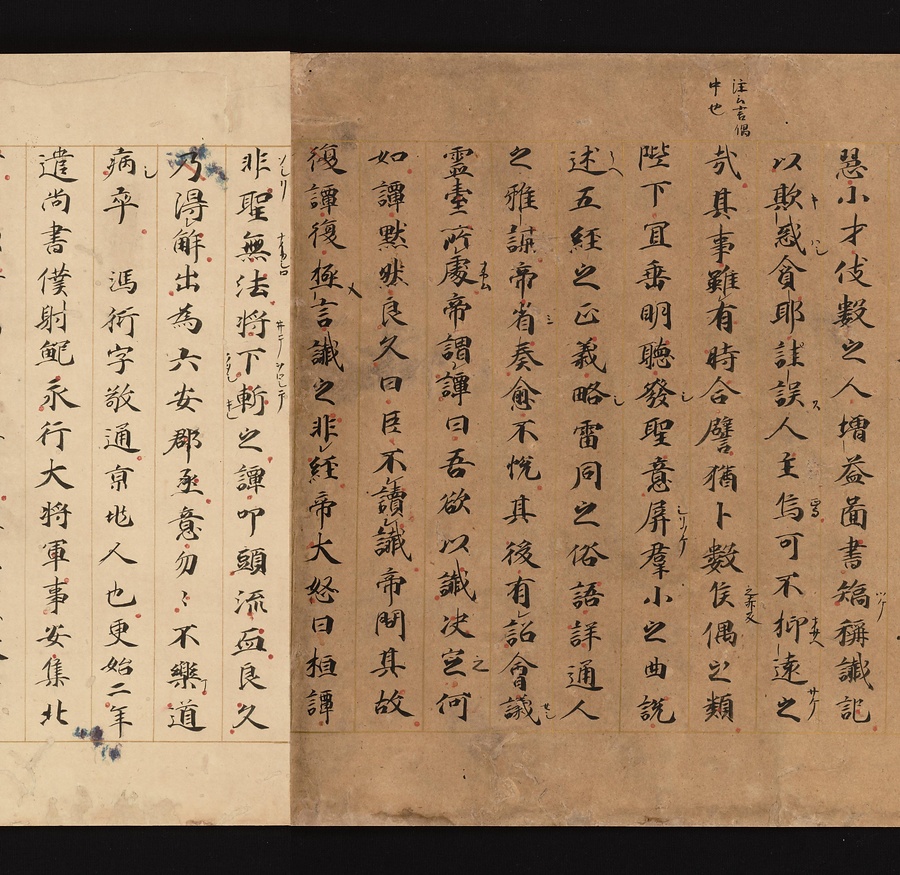 注云言偶
中也
慧小才伎數之人増益圖書矯稱讖記
以欺惑貪耶詿誤人主焉可不抑遠之
哉其事雖有時合譬猶卜數隻偶之類
陛下宜垂明聽發聖意屏羣小之曲說
述五經之正義略雷同之俗語詳通人
之雅謀帝省奏愈不悅其後有詔會議
靈臺所處帝謂譚曰吾欲以讖决之何
如譚默然良久曰臣不讀讖帝問其故
復譚復極言讖之非經帝大怒曰桓譚
非聖無法將下斬之譚叩頭流血良久
乃得解出為六安郡丞意忽〻不樂道
病卒 馮衍字敬通京兆人也更始二年
遣尚書僕射鮑永行大将軍事安集北